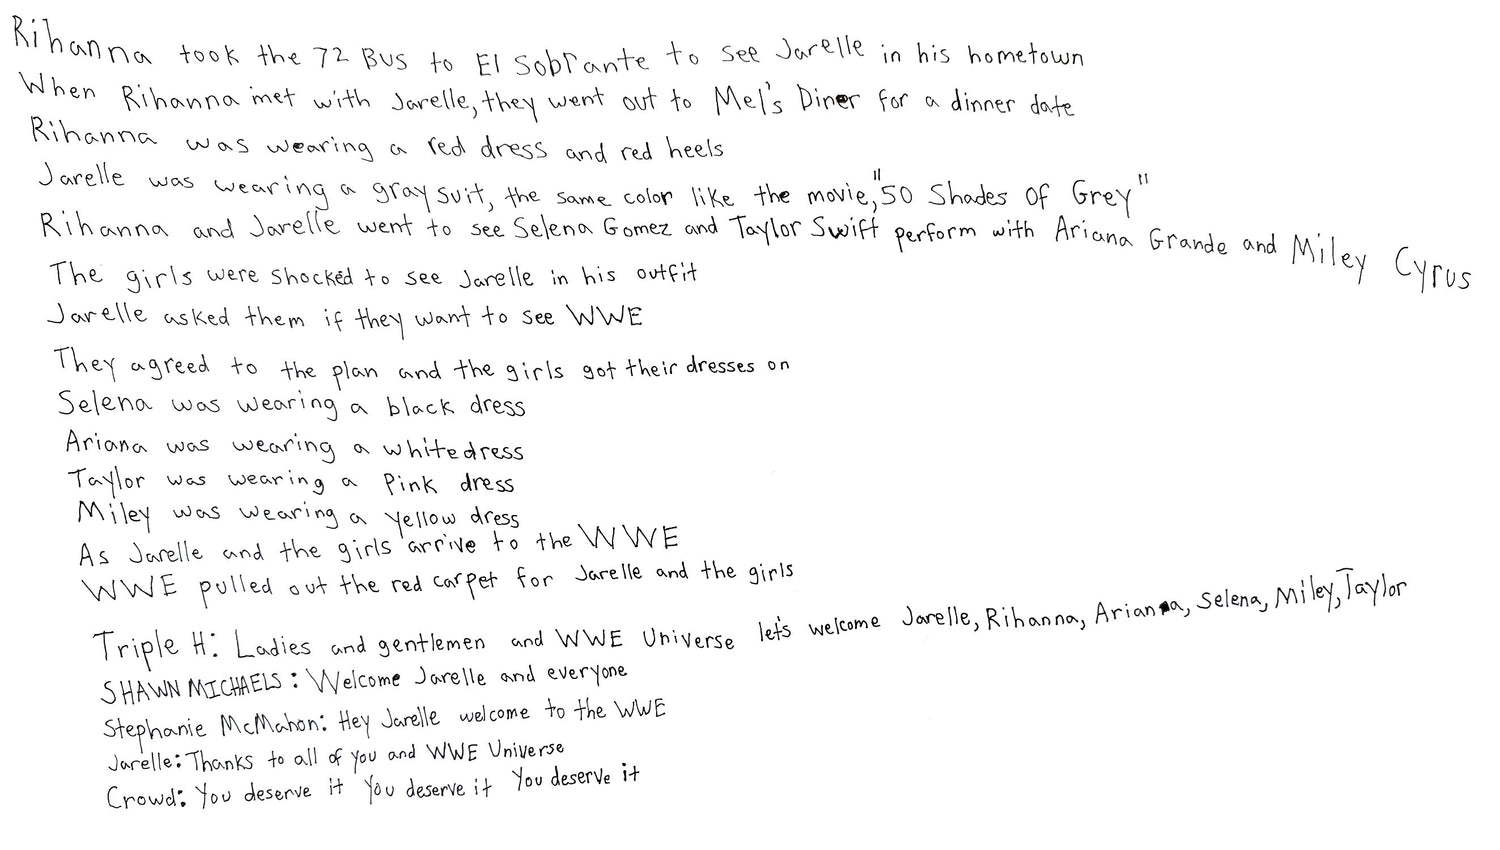 Rihanna took the 72 Bus to El Sobrante to see Jarelle in his hometown
When Rihanna met with Jarelle, they went out to Mel's Diner for a dinner date
Rihanna was wearing a red dress and red heels
Jarelle was wearing a gray suit, the same color like the movie, "50 Shades of Grey"
Rihanna and Jarelle went to see Selena Gomez and Taylor Swift perform with Ariana Grande and Miley Cyrus
The girls were shocked to see Jarelle in his outfit
Jarelle asked them if they want to see WWE
They agreed to the plan and the girls got their dresses on
Selena was wearing a black dress
Ariana was wearing a white dress
Taylor was wearing a Pink dress
Miley was wearing a yellow dress
As Jarelle and the girls arrive to the WWE
WWE pulled out the red carpet for Jarelle and the girls
Triple H: Ladies and gentlemen and WWE Universe let's welcome Jarelle, Rihanna, Ariana, Selena, Miley, Taylor
SHAWN MICHAELS: Welcome Jarelle and everyone
Stephanie McMahon: Hey Jarelle welcome to the WWE
Jarelle: Thanks to all of you and WWE Universe
Crowd: You deserve it You deserve it You deserve it